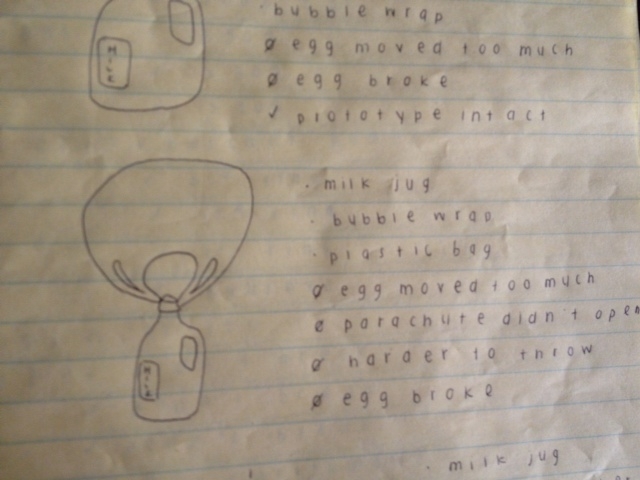 · bubble wrap
ø egg moved too much
ø egg broke
✓ prototype intact
Milk
· milk jug
· bubble wrap
· plastic bag
ø egg moved too much
ø parachute didn't open
ø harder to throw
ø egg broke
Milk
· milk jug